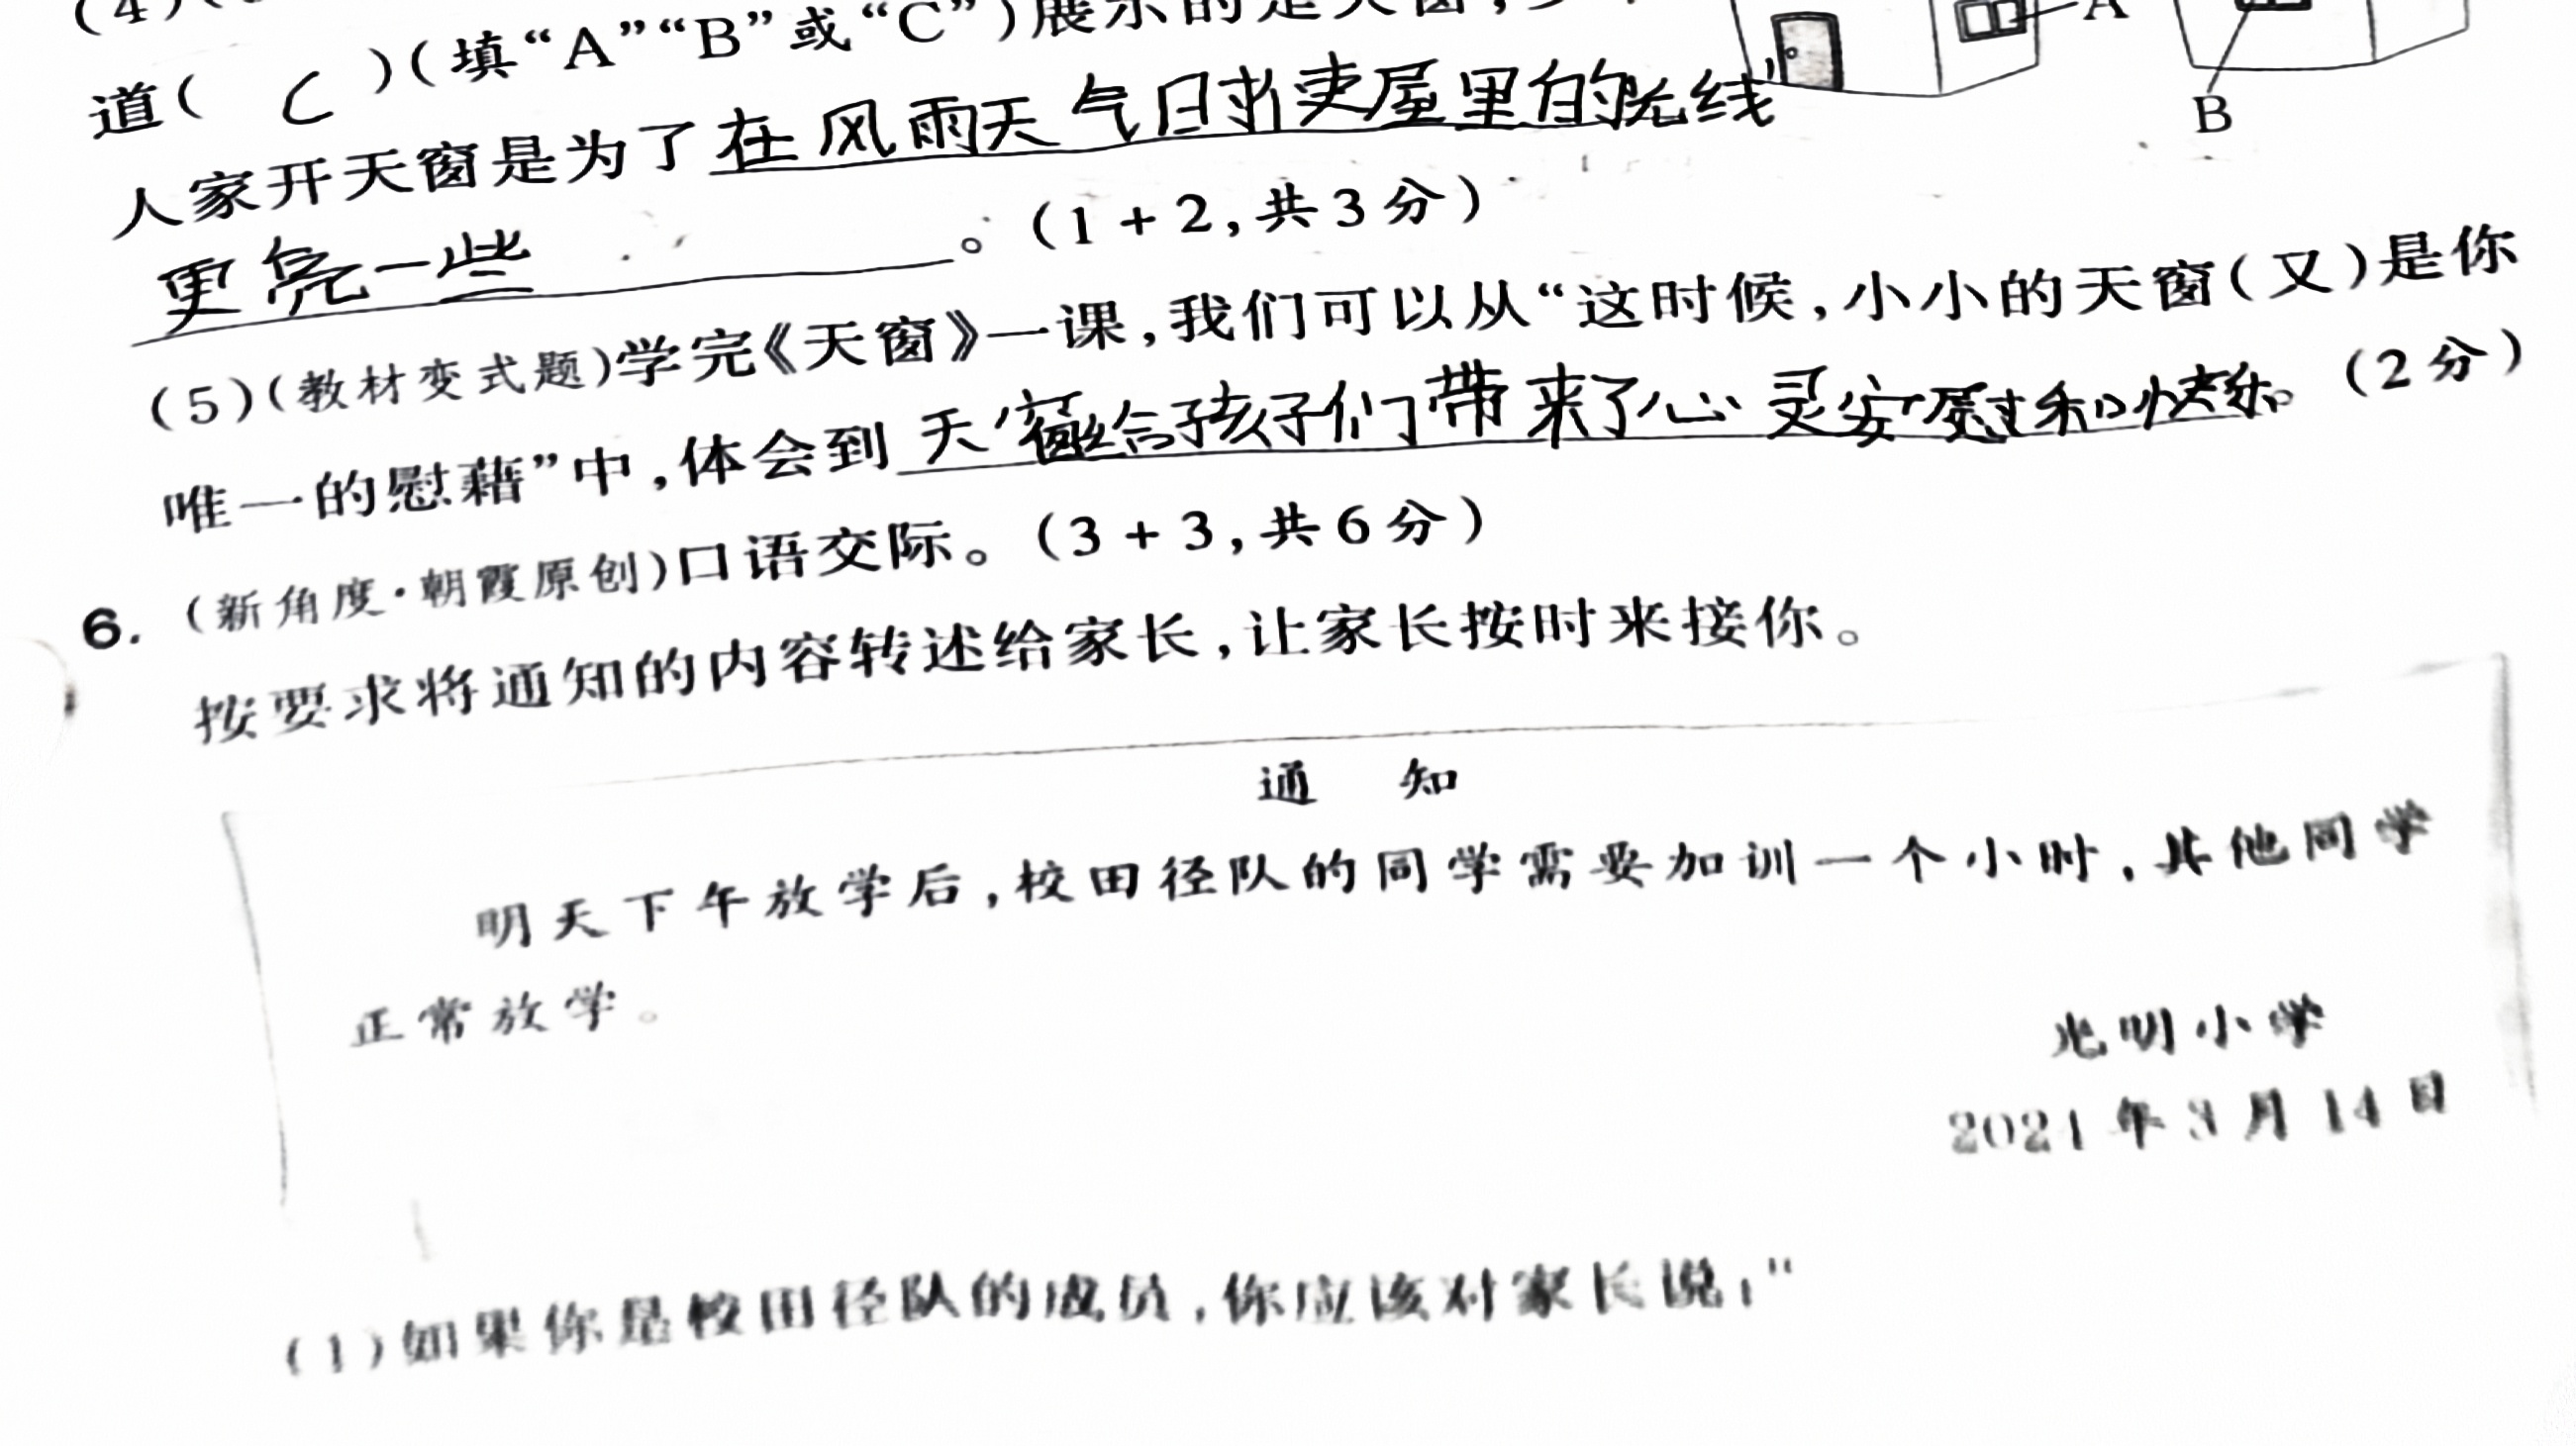 道( C )(填“A”“B”或“C”)展示的是天窗,
A
B
人家开天窗是为了在风雨天气日才使屋里的光线
更亮一些。(1+2,共3分)
(5)(教材变式题)学完《天窗》一课,我们可以从“这时候,小小的天窗(又)是你
唯一的慰藉”中,体会到天窗给孩子们带来了心灵安慰和快乐。(2分)
6.(新角度·朝霞原创)口语交际。(3+3,共6分)
按要求将通知的内容转述给家长,让家长按时来接你。
通 知
明天下午放学后,校田径队的同学需要加训一个小时,其他同学
正常放学。
光明小学
2021年3月14日
(1)如果你是校田径队的成员,你应该对家长说:“